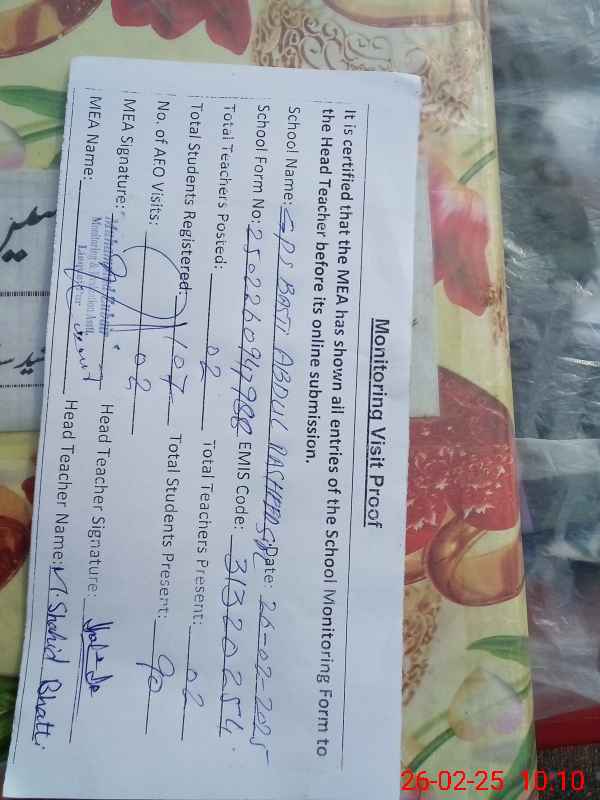 Monitoring Visit Proof
It is certified that the MEA has shown all entries of the School Monitoring Form to
the Head Teacher before its online submission.
School Name: GPS BASTI ABDUL RASHEED Date: 26-02-2025
School Form No: 2502260947988 EMIS Code: 31320254
Total Teachers Posted: 02 Total Teachers Present: 02
Total Students Registered: 107 Total Students Present: 90
No. of AEO Visits: 02
MEA Signature: Head Teacher Signature:
MEA Name: Head Teacher Name: M Shahid Bhatti
26-02-25 10:10